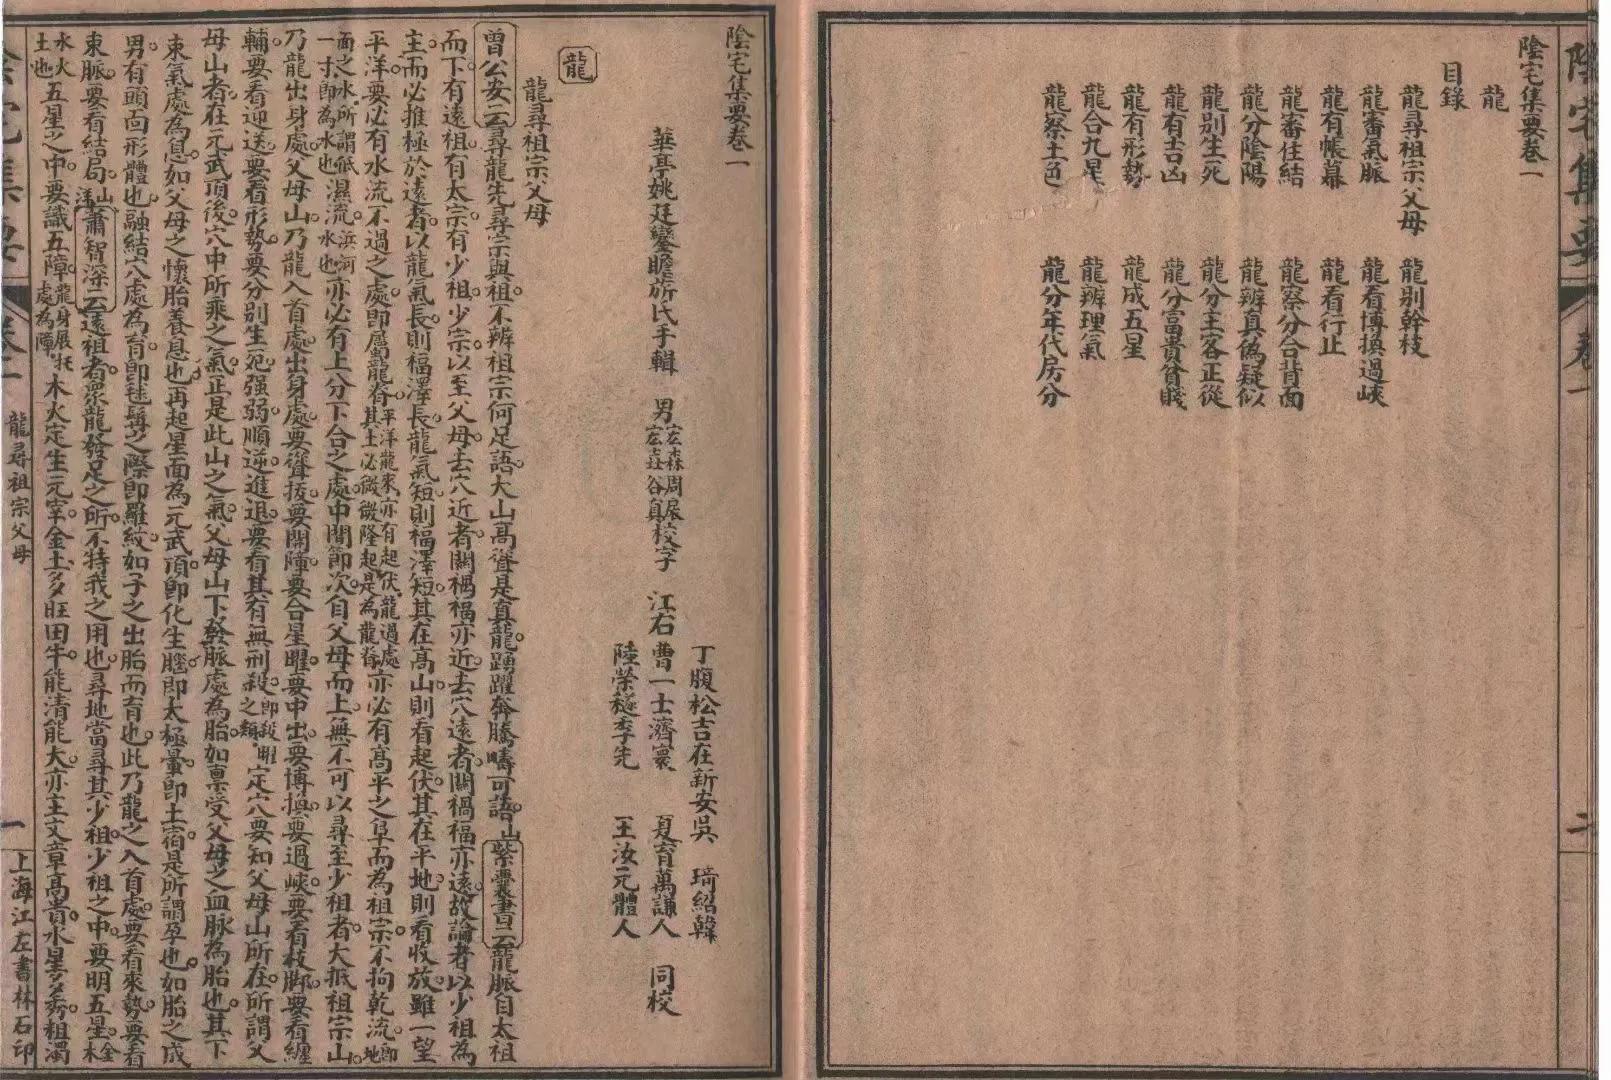 陰宅集要 卷一 二
陰宅集要卷一
龍
目錄
龍尋祖宗父母 龍別幹枝
龍審氣脈 龍看博換過峽
龍有帳幕 龍看行止
龍審住結 龍察分合背面
龍分陰陽 龍辨真偽疑似
龍別生死 龍分主客正從
龍有吉凶 龍分富貴貧賤
龍有形勢 龍成五星
龍合九星 龍辨理氣
龍察土色 龍分年代房分
陰宅集要卷一
丁腹松吉在新安吳 琦紹韓
華亭姚廷鑾瞻旂氏手輯 男宏森周展宏壵谷真校字 江右曹一士濟寰 夏育萬謙人 同校
陸榮穟季先 王汝元體人
龍
龍尋祖宗父母
曾公安云尋龍先尋宗與祖。不辨祖宗何足語。大山高聳是真龍。踴躍奔騰疇可語。山紫囊書云龍脈自太祖
而下。有遠祖。有太宗。有少祖。少宗。以至父母。去穴近者。關禍福亦近。去穴遠者。關禍福亦遠。故論者以少祖為
主。而必推極於遠者。以龍氣長則福澤長。龍氣短則福澤短。其在高山則看起伏。其在平地則看收放。雖一望
平洋。要必有水流不過之處。即屬龍脊。平洋龍來亦有起伏。龍過處其土必微微隆起。是為龍脊亦必有高平之阜而為祖宗。不拘乾流。即地
面之水。所謂低一寸即為水也濕流。浜河水也亦必有上分下合之處。中間節次。自父母而上。無不可以尋至少祖者。大抵祖宗山。
乃龍出身處。父母山。乃龍入首處。出身處。要聳拔。要開障。要合星曜。要中出。要博換。要過峽。要看枝腳。要看纏
輔。要看迎送。要看形勢。要分別生死。强弱。順逆。進退。要看其有無刑殺。即殺曜之類。定穴要知父母山所在。所謂父
母山者。在元武頂後。穴中所乘之氣。正是此山之氣。父母山下。發脈處為胎。如禀受父母之血脈為胎也。其下
束氣處為息。如父母之懷胎養息也。再起星面為元武頂。即化生腦。即太極暈。即土宿。是所謂孕也。如胎之成
男。有頭面形體也。融結穴處為育。即毬髯之際。即羅紋。如子之出胎而育也。此乃龍之入首處。要看來勢。要看
束脈。要看結局。山洋蕭智深云遠祖者。衆龍發足之所。不特我之用也。尋地當尋其少祖。少祖之中。要明五星。金木
水火土也五星之中。要識五障。龍身展托處為障。木火定生元宰。金土多旺田牛。能清能大。亦主文章高貴。水星多秀。祖濁
陰宅集要 卷一 龍尋祖宗父母 一 上海江左書林石印